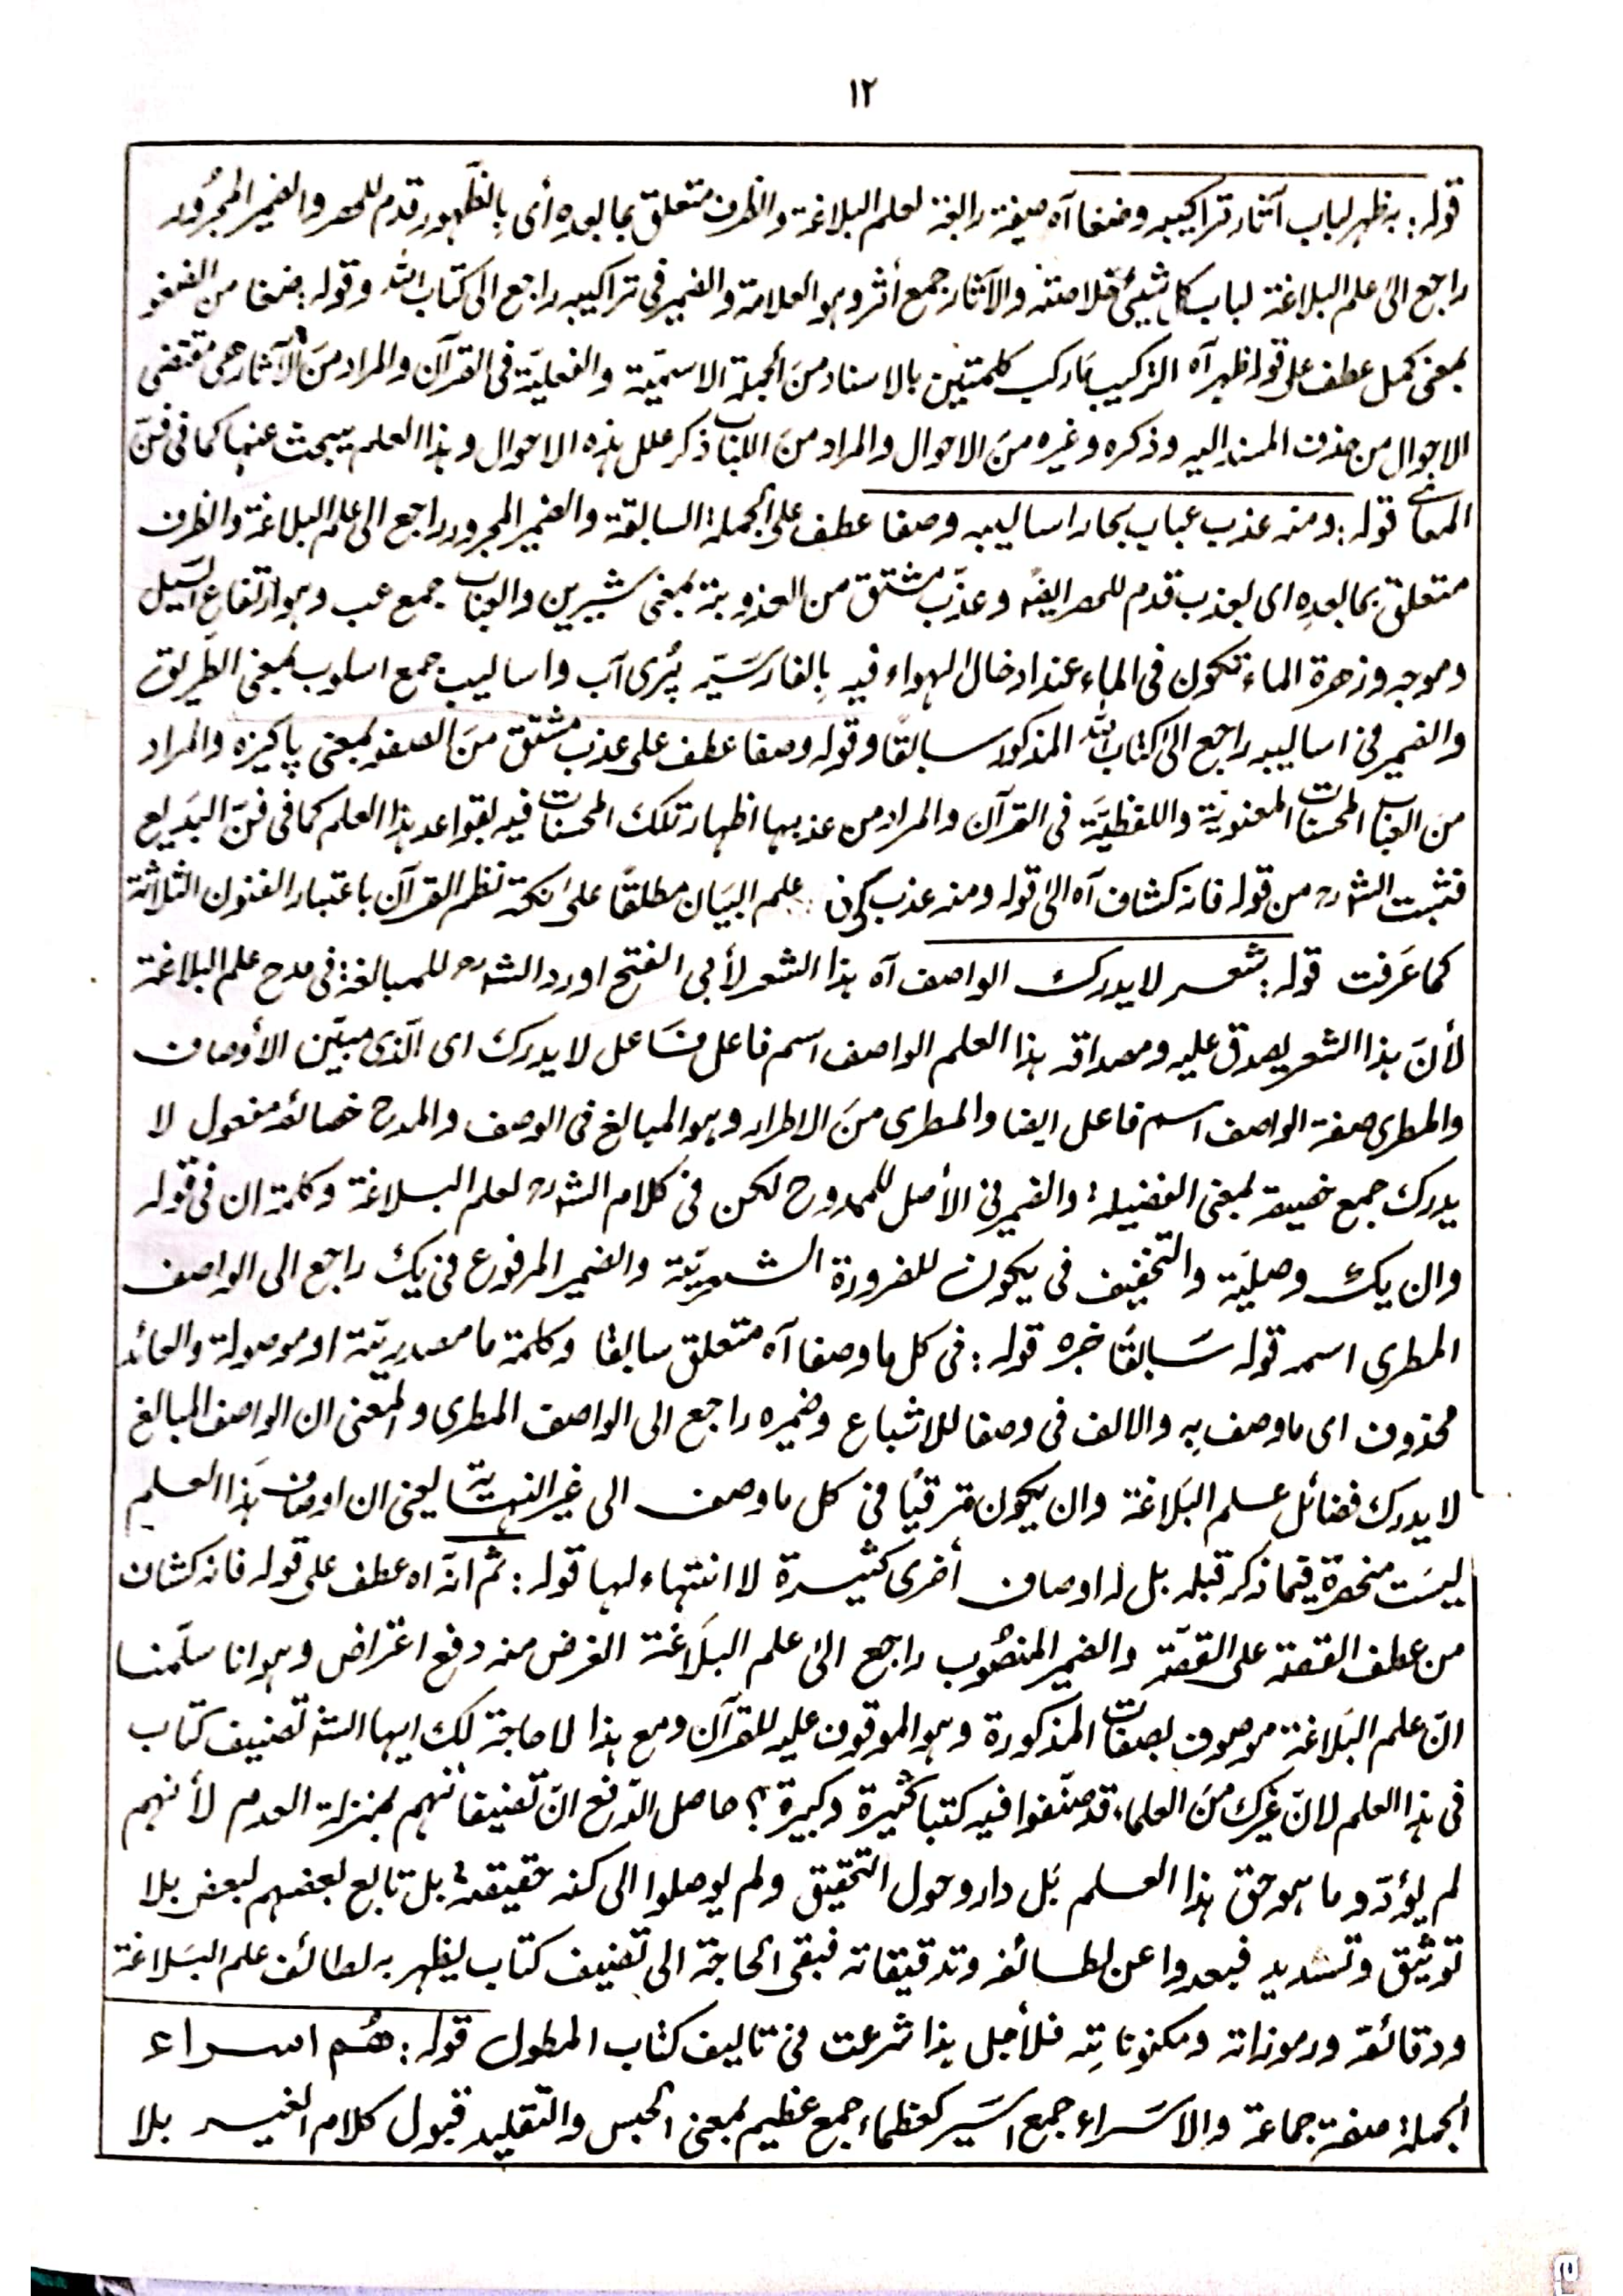 ١٢
قولہ: بہ ظہر لباب آثار تراکیبہ وضفا آہ صیغۃ رابعۃ لعلم البلاغۃ والظرف متعلق بما بعدہ أی بالظّہور قدم للحصر والضمیر المجرُور
راجع الی علم البلاغۃ لباب کل شیئ خلاصتہ والآثار جمع أثر وہو العلامۃ والضمیر فی تراکیبہ راجع الی کتاب اللہ وقولہ: ضفا من الضفو
بمعنی کمل عطف علی قولہ ظہر آہ الترکیب مَا رکب کلمتین بالاسناد منَ الجملۃ الاسمیّۃ والفعلیّۃ فی القرآن والمراد منَ الآثار ھی مقتضی
الاحوال من حذف المسند الیہ وذکرہ وغیرہ منَ الاحوال والمراد من اللباب ذکر علل ہذہ الاحوال وہذا العلم یبحث عنہا کما فی فنّ
المعانی قولہ: ومنہ عذب عباب بحار اسالیبہ وصفا عطف علی الجملۃ السابقۃ والضمیر المجرور راجع الی علم البلاغۃ والظرف
متعلق بما بعدہ ای بعذب قدم للحصر ایضًا وعذب مشتق من العذوبۃ بمعنی شیرین والعباب جمع عب وہو ارتفاع السَّیل
وموجہ وزھرۃ الماء تکون فی الماء عند ادخال الہواء فیہ بالفارسَیّۃ پُری آب واسالیب جمع اسلوب بمعنی الطریق
والضمیر فی اسالیبہ راجع الی کتاب اللہ المذکور سابقًا وقولہ وصفا عطف علی عذب مشتق منَ الصفو بمعنی پاکیزہ والمراد
منَ العباب المحسنات المعنویّۃ واللفظیَّۃ فی القرآن والمراد من عذبہا اظہار تلک المحسنات فیہ بقواعد ہذا العلم کما فی فنّ البَدیع
فثبت الشرح من قولہ فانہ کشاف آہ الی قولہ ومنہ عذب علم البیَان مطلقًا علی نکتۃ نظم القرآن باعتبار الفنون الثلاثۃ
کما عَرفت قولہ: شعر لا یدرک الواصف آہ ہذا الشعر لأبی الفتح اورد الشرح للمبالغۃ فی مدح علم البلاغۃ
لأنّ ہذا الشعر یصدق علیہ ومصداقہ ہذا العلم الواصف اسم فاعل فَاعل لا یدرک ای الّذی مبیّن الأوصاف
والمطری صفۃ الواصف اسم فاعل ایضا والمطری منَ الاطراء وہو المبالغ فی الوصف والمدح خصائصہ مفعول لا
یدرک جمع خصیصۃ بمعنی الفضیلۃ والضمیر فی الأصل للممدوح لکن فی کلام الشرح لعلم البلاغۃ وکلمۃ ان فی قولہ
وان یک وصلیّۃ والتخفیف فی یکون للضرورۃ الشعریّۃ والضمیر المرفوع فی یک راجع الی الواصف
المطری اسمہ قولہ سَابقًا خبرہ قولہ: فی کل ما وصفا آہ متعلق سابقا وکلمۃ ما مصدریّۃ او موصولۃ والعائد
محذوف ای ما وصف بہ والالف فی وصفا للاشباع وضمیرہ راجع الی الواصف المطری والمعنی ان الواصف المبالغ
لا یدرک فضائل علم البَلاغۃ وان یکون مترقیًا فی کل ما وصف الی غیر النہایۃ یعنی ان اوصاف ہَذا العلم
لیسَت منحصرۃ فیما ذکر قبلہ بل لہ اوصاف أخری کثیرۃ لا انتہاء لہا قولہ: ثم انّہ اہ عطف علی قولہ فانہ کشاف
من عطف القصۃ علی القصّۃ والضمیر المنصُوب راجع الی علم البلَاغۃ الغرض منہ دفع اعتراض وہو انا سلّمنا
انّ علم البَلاغۃ موصوف بصفات المذکورۃ وہو الموقوف علیہ للقرآن ومع ہذا لا حاجۃ لک ایہا الشہ تصنیف کتاب
فی ہذا العلم لانّ غیرک منَ العلماء قد صنّفوا فیہ کتبا کثیرۃ وکبیرۃ؟ حاصل الدّفع انّ تصنیفاتہم بمنزلۃ العدم لأنہم
لم یؤدّوا ما ہو حق ہذا العلم بَل داروا حول التحقیق ولم یوصلوا الی کنہ حقیقتہ بل تابع بعضہم لبعض بلا
توثیق وتسدید فبعدوا عن لطائفہ وتدقیقاتہ فبقی الحاجۃ الی تصنیف کتاب یظہر بہ لطائف علم البَلاغۃ
ودقائقہ ورموزاتہ ومکنوناتِہ فلأجل ہذا شرعت فی تالیف کتاب المطول قولہ: ھُم اسراء
الجملۃ صفۃ جماعۃ والاسَراء جمع اسَیر کعظماء جمع عظیم بمعنی الحبس والتقلید قبول کلام الغیر بلا